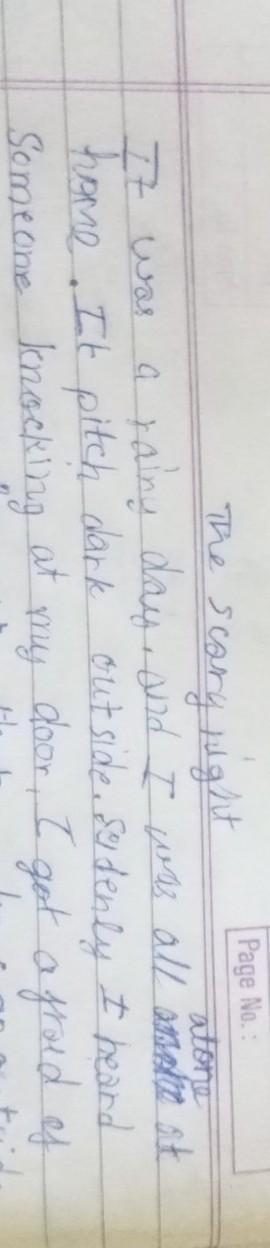 Page No.:
The scary night
It was a rainy day, and I was all alone at
home. It pitch dark outside. Sudenly I heard
Someone knocking at my door, I got afraid as